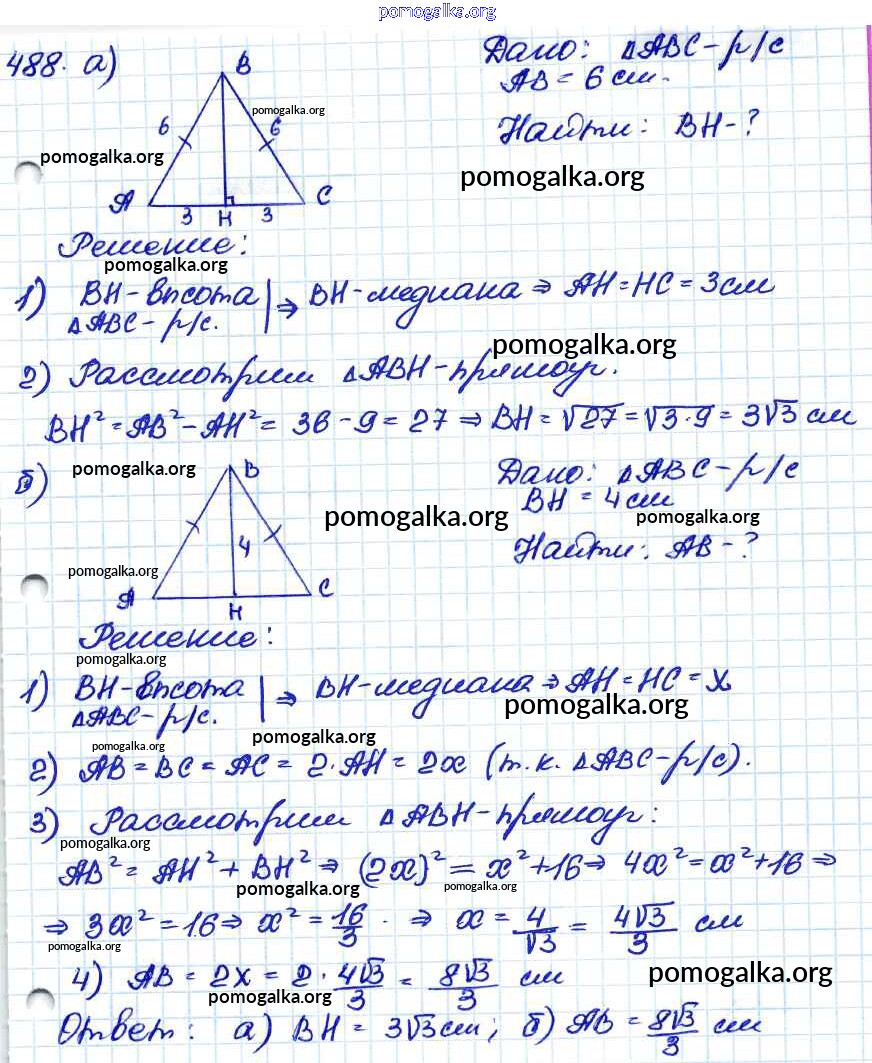 pomogalka.org
488. а)
B
6
6
pomogalka.org
pomogalka.org
A
C
3 H 3
Дано: ΔABC-р/с
AB = 6 см.
Найти: BH-?
pomogalka.org
Решение:
pomogalka.org
1) BH-высота
ΔABC-р/с.
⇒ BH-медиана ⇒ AH=HC=3см
pomogalka.org
2) Рассмотрим ΔABH-прямоуг.
BH²=AB²-AH²= 36-9=27 ⇒ BH=√27=√3·9=3√3 см
б)
pomogalka.org
B
4
pomogalka.org
pomogalka.org
A
C
H
Дано: ΔABC-р/с
BH = 4см
pomogalka.org
Найти: AB-?
Решение:
pomogalka.org
1) BH-высота
ΔABC-р/с.
⇒ BH-медиана ⇒ AH=HC=x
pomogalka.org
pomogalka.org
pomogalka.org
2) AB=BC=AC=2·AH=2x (т.к. ΔABC-р/с).
3) Рассмотрим ΔABH-прямоуг:
pomogalka.org
AB²=AH²+BH² ⇒ (2x)²=x²+16 ⇒ 4x²=x²+16 ⇒
pomogalka.org
pomogalka.org
⇒ 3x²=16 ⇒ x²=16/3 · ⇒ x=4/√3 = 4√3/3 см
pomogalka.org
4) AB=2x=2·4√3/3 = 8√3/3 см
pomogalka.org
pomogalka.org
Ответ: а) BH = 3√3см; б) AB = 8√3/3 см